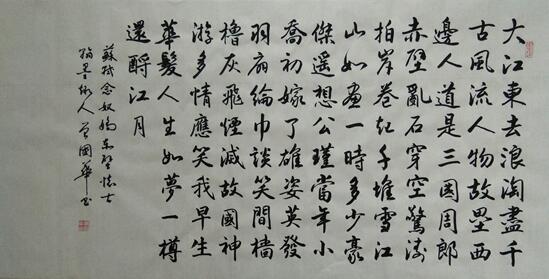 大江東去浪淘盡千
古風流人物故壘西
邊人道是三國周郎
赤壁亂石穿空驚濤
拍岸卷起千堆雪江
山如畫一時多少豪
傑遙想公瑾當年小
喬初嫁了雄姿英發
羽扇綸巾談笑間檣
櫓灰飛煙滅故國神
游多情應笑我早生
華髮人生如夢一樽
還酹江月
蘇軾念奴嬌赤壁懷古
翰墨人國華書